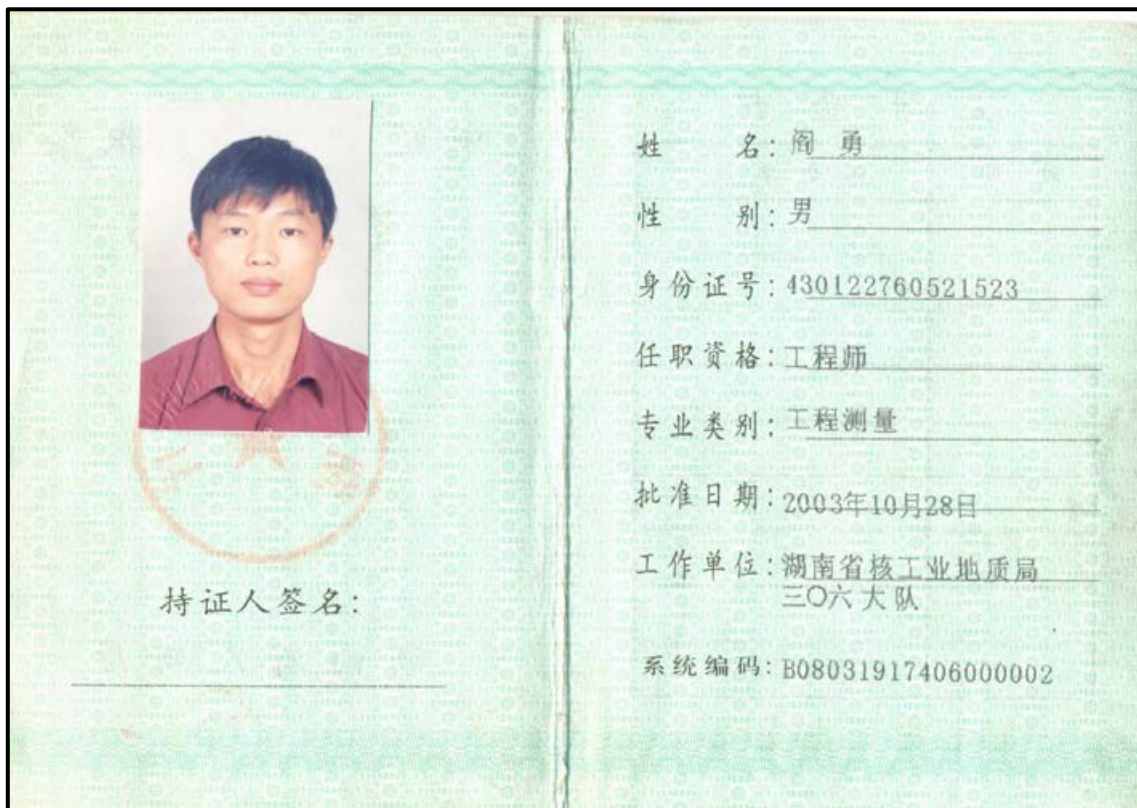 持证人签名:
姓 名: 阎 勇
性 别: 男
身份证号: 430122760521523
任职资格: 工程师
专业类别: 工程测量
批准日期: 2003年10月28日
工作单位: 湖南省核工业地质局
三〇六大队
系统编码: B08031917406000002